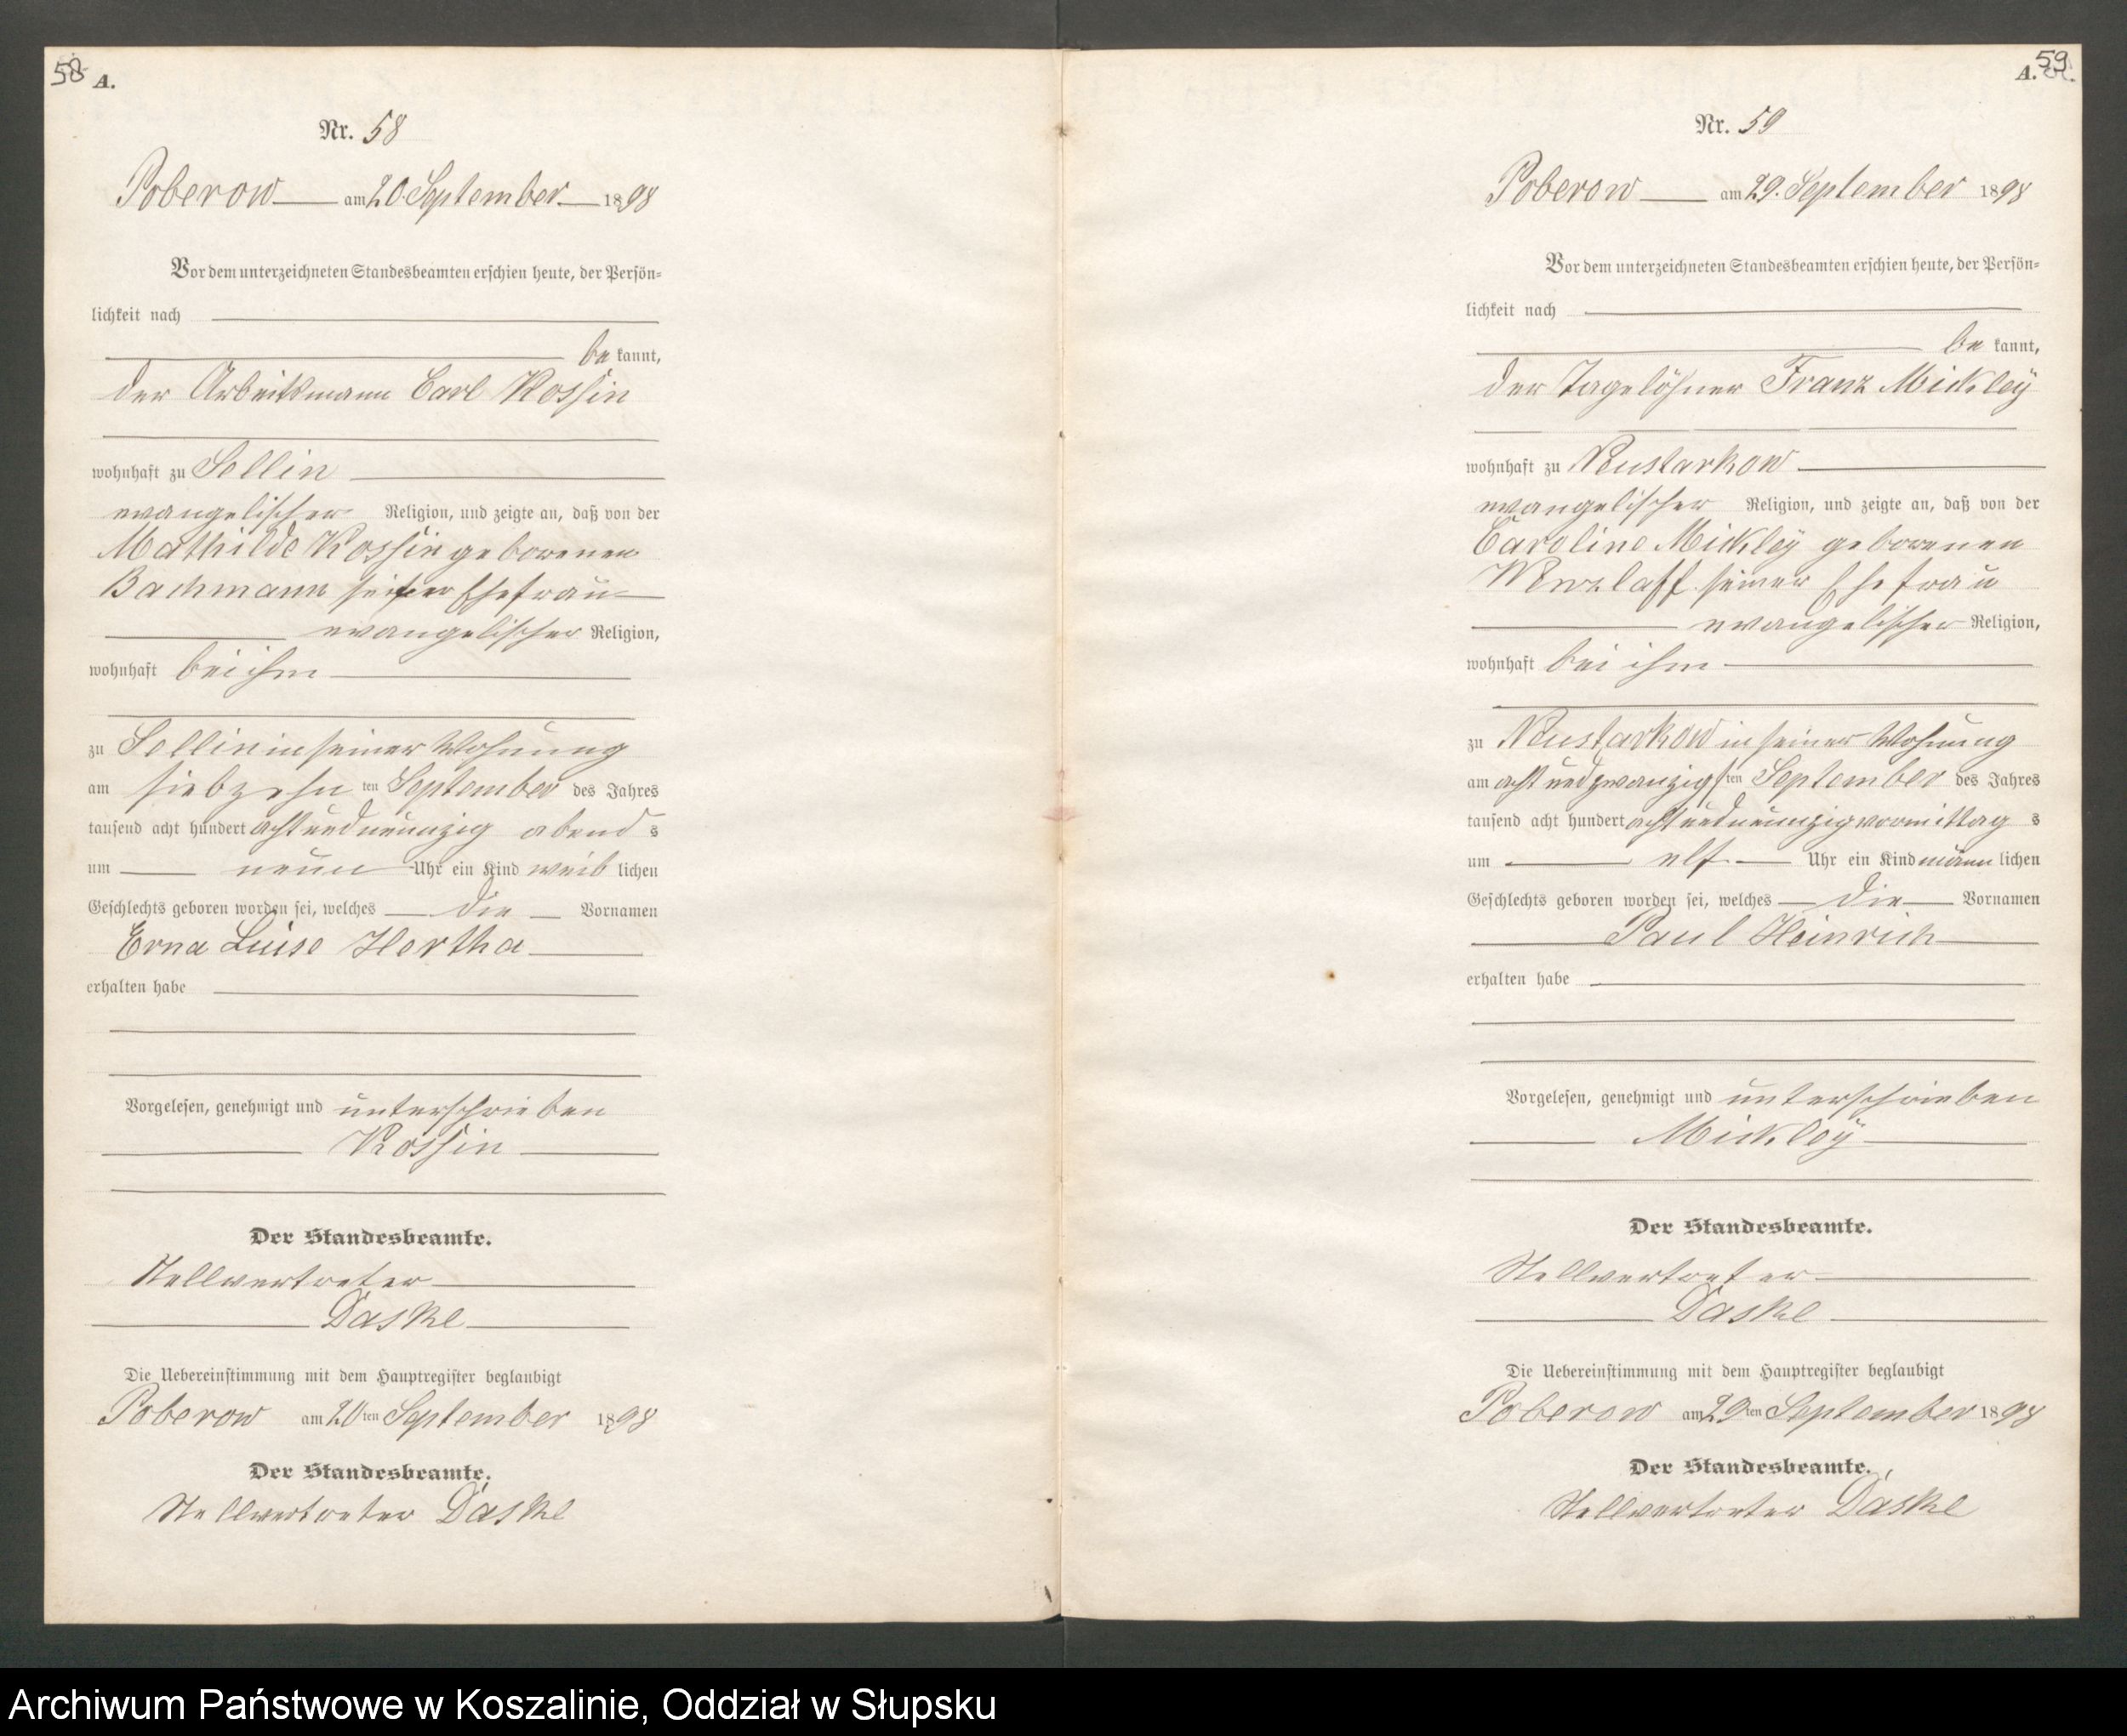 58 A.
Nr. 58
Poberow am 20. September 1898
Vor dem unterzeichneten Standesbeamten erschien heute, der Persön-
lichkeit nach
be kannt,
der Arbeitsmann Carl Kossin
wohnhaft zu Sellin
evangelischer Religion, und zeigte an, daß von der
Mathilde Kossin geborenen
Bachmann seiner Ehefrau
evangelischer Religion,
wohnhaft bei ihm
zu Sellin in seiner Wohnung
am siebzehn ten September des Jahres
tausend acht hundert achtundneunzig abend s
um neun Uhr ein Kind weib lichen
Geschlechts geboren worden sei, welches die Vornamen
Erna Luise Hertha
erhalten habe
Vorgelesen, genehmigt und unterschrieben
Kossin
Der Standesbeamte.
Stellvertreter
Daske
Die Uebereinstimmung mit dem Hauptregister beglaubigt
Poberow am 20ten September 1898
Der Standesbeamte.
Stellvertreter Daske
A. 59
Nr. 59
Poberow am 29. September 1898
Vor dem unterzeichneten Standesbeamten erschien heute, der Persön-
lichkeit nach
be kannt,
der Tagelöhner Franz Mickley
wohnhaft zu Neustarkow
evangelischer Religion, und zeigte an, daß von der
Caroline Mickley geborenen
Wenzlaff seiner Ehefrau
evangelischer Religion,
wohnhaft bei ihm
zu Neustarkow in seiner Wohnung
am acht und zwanzigs ten September des Jahres
tausend acht hundert achtundneunzig vormittag s
um elf Uhr ein Kind männ lichen
Geschlechts geboren worden sei, welches die Vornamen
Paul Heinrich
erhalten habe
Vorgelesen, genehmigt und unterschrieben
Mickley
Der Standesbeamte.
Stellvertreter
Daske
Die Uebereinstimmung mit dem Hauptregister beglaubigt
Poberow am 29ten September 1898
Der Standesbeamte.
Stellvertreter Daske
Archiwum Państwowe w Koszalinie, Oddział w Słupsku